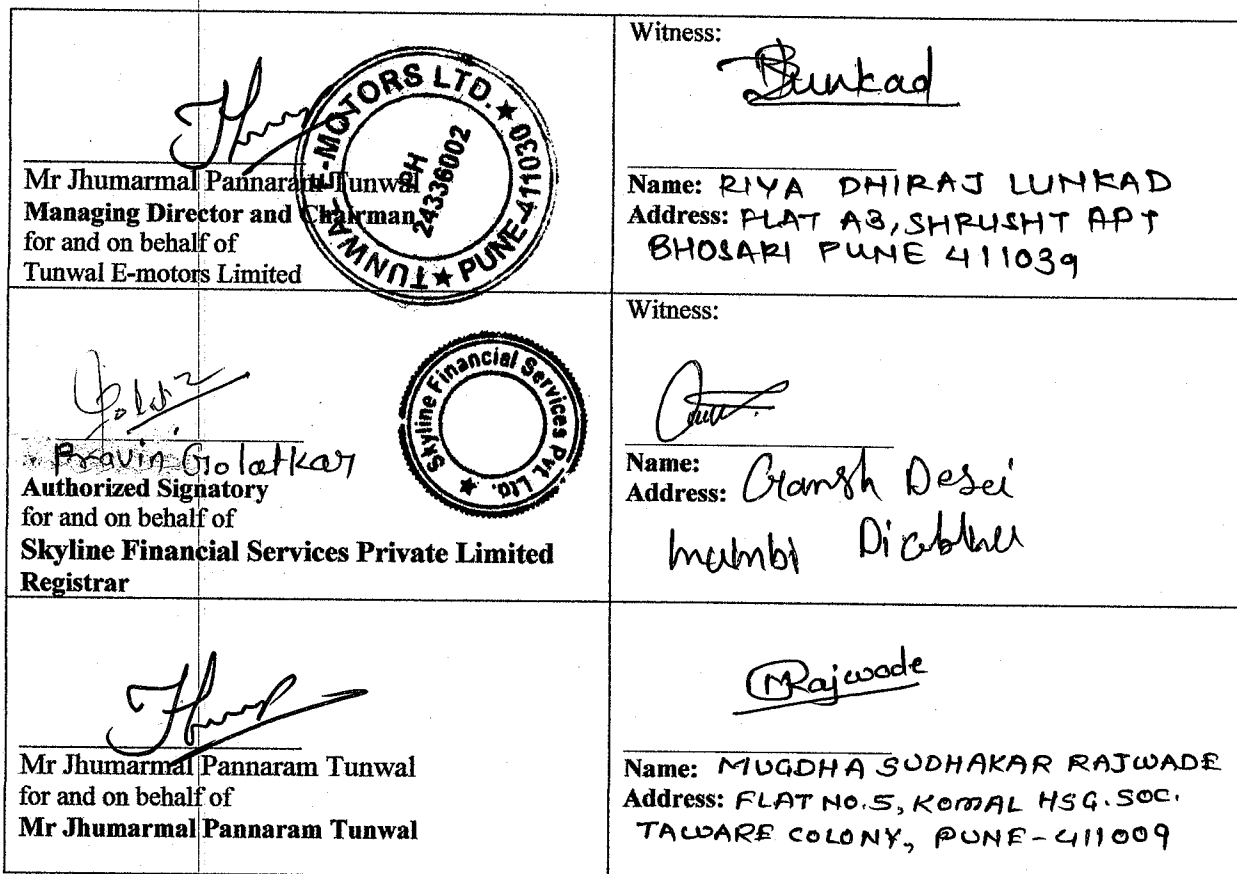 TUNWAL E-MOTORS LTD. ★ PUNE-411030 ★
PH
24336002
Mr Jhumarmal Pannaram Tunwal
Managing Director and Chairman
for and on behalf of
Tunwal E-motors Limited
Witness:
Lunkad
Name: RIYA DHIRAJ LUNKAD
Address: FLAT A3, SHRUSHT APT
BHOSARI PUNE 411039
Skyline Financial Services Pvt. Ltd. ★
Pravin Golatkar
Authorized Signatory
for and on behalf of
Skyline Financial Services Private Limited
Registrar
Witness:
Name:
Address: Desai
Mr Jhumarmal Pannaram Tunwal
for and on behalf of
Mr Jhumarmal Pannaram Tunwal
MRajwade
Name: MUGDHA SUDHAKAR RAJWADE
Address: FLAT NO.5, KOMAL HSG. SOC.
TAWARE COLONY, PUNE-411009